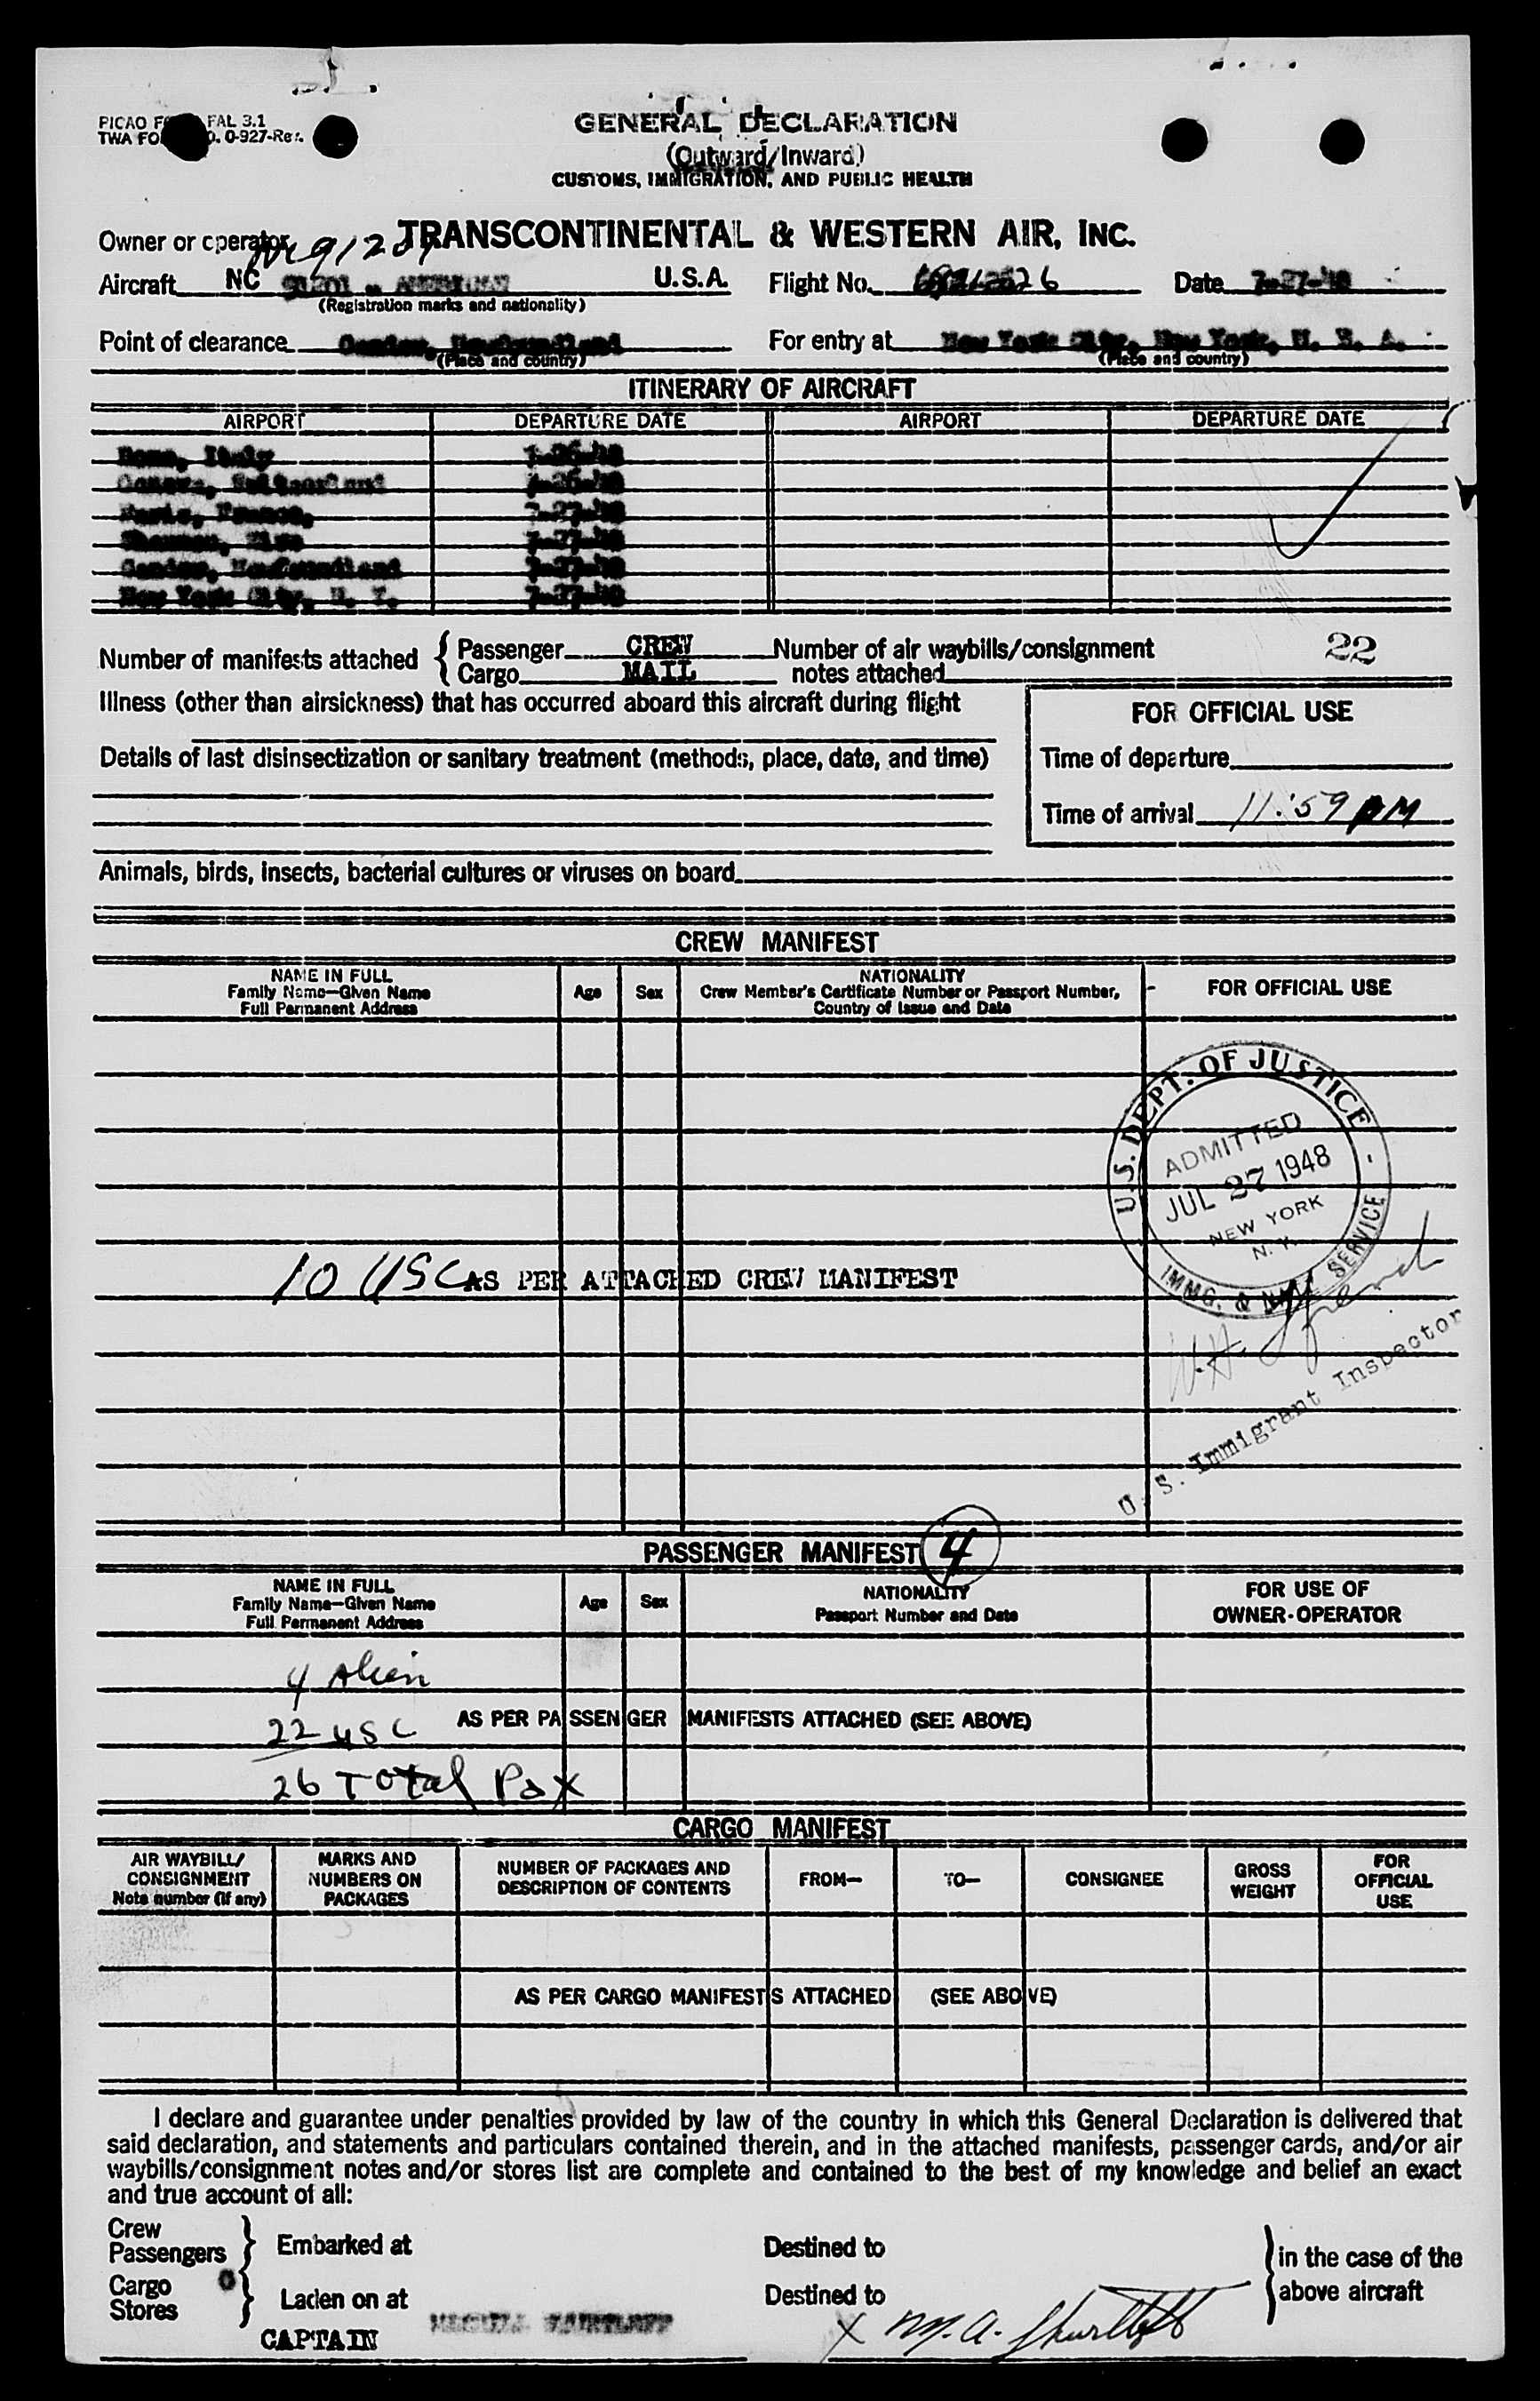 GENERAL DECLARATION
(Outward/Inward)
CUSTOMS, IMMIGRATION, AND PUBLIC HEALTH
PICAO FAL 3.1
TWA 0-927-Rev.
Owner or operator TRANSCONTINENTAL & WESTERN AIR, INC.
Aircraft NC U.S.A. Flight No. Date 7-27-48
(Registration marks and nationality)
Point of clearance Gander, Newfoundland For entry at New York City, New York, U. S. A.
(Place and country) (Place and country)
ITINERARY OF AIRCRAFT
AIRPORT DEPARTURE DATE AIRPORT DEPARTURE DATE
Rome, Italy 7-26-48
Geneva, Switzerland 7-26-48
Paris, France, 7-27-48
Shannon, Eire 7-27-48
Gander, Newfoundland 7-27-48
New York City, N. Y. 7-27-48
Number of manifests attached { Passenger CREW Number of air waybills/consignment 22
Cargo MAIL notes attached
Illness (other than airsickness) that has occurred aboard this aircraft during flight
FOR OFFICIAL USE
Details of last disinsectization or sanitary treatment (methods, place, date, and time)
Time of departure
Time of arrival 11:59 PM
Animals, birds, insects, bacterial cultures or viruses on board
CREW MANIFEST
NAME IN FULL
Family Name—Given Name
Full Permanent Address
Age Sex
NATIONALITY
Crew Member's Certificate Number or Passport Number,
Country of Issue and Date
FOR OFFICIAL USE
U.S. DEPT. OF JUSTICE
ADMITTED
JUL 27 1948
NEW YORK
N. Y.
IMMG. & NATZ SERVICE
10 USC AS PER ATTACHED CREW MANIFEST
W.H.
U. S. Immigrant Inspector
PASSENGER MANIFEST 4
NAME IN FULL
Family Name—Given Name
Full Permanent Address
Age Sex
NATIONALITY
Passport Number and Date
FOR USE OF
OWNER-OPERATOR
4 Alien
22 USC AS PER PASSENGER MANIFESTS ATTACHED (SEE ABOVE)
26 Total Pax
CARGO MANIFEST
AIR WAYBILL/
CONSIGNMENT
Note number (if any)
MARKS AND
NUMBERS ON
PACKAGES
NUMBER OF PACKAGES AND
DESCRIPTION OF CONTENTS
FROM— TO— CONSIGNEE
GROSS
WEIGHT
FOR
OFFICIAL
USE
AS PER CARGO MANIFESTS ATTACHED (SEE ABOVE)
I declare and guarantee under penalties provided by law of the country in which this General Declaration is delivered that
said declaration, and statements and particulars contained therein, and in the attached manifests, passenger cards, and/or air
waybills/consignment notes and/or stores list are complete and contained to the best of my knowledge and belief an exact
and true account of all:
Crew
Passengers } Embarked at Destined to } in the case of the
Cargo
Stores } Laden on at Destined to above aircraft
CAPTAIN
X M. A. Shurtleff